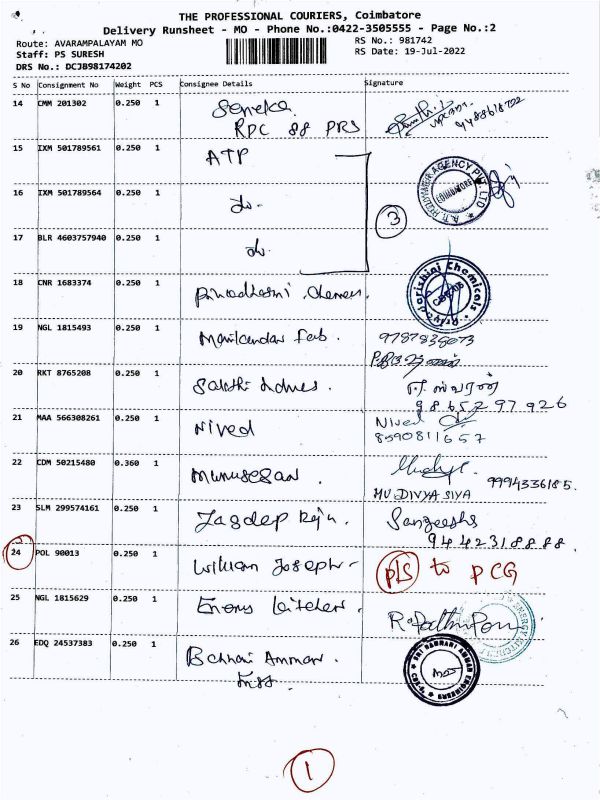 THE PROFESSIONAL COURIERS, Coimbatore
Delivery Runsheet - MO - Phone No.:0422-3505555 - Page No.:2
Route: AVARAMPALAYAM MO
RS No.: 981742
Staff: PS SURESH
RS Date: 19-Jul-2022
DRS No.: DCJB98174202
S No Consignment No Weight PCS Consignee Details Signature
14 CMM 201302 0.250 1
RPC 88 PRS
9488618702
15 IXM 501789561 0.250 1 ATP
16 IXM 501789564 0.250 1 do.
3
17 BLR 4603757940 0.250 1 do.
18 CNR 1683374 0.250 1
Priyadarshini Chemicals
19 NGL 1815493 0.250 1 Manikandan Fab. 9787838073
20 RKT 8765208 0.250 1 Sakthi
98652 97926
21 MAA 566308261 0.250 1 Nived Nived
8590811657
22 CDM 50215480 0.360 1 Munusesan 9994336185.
MU DIVYA SIYA
23 SLM 299574161 0.250 1 Jagdep Raju. Sangeeths
9442318888.
24 POL 90013 0.250 1 William Joseph - p/s to PCG
25 NGL 1815629 0.250 1 Enerys kitchen
26 EDQ 24537383 0.250 1 Amman.
1